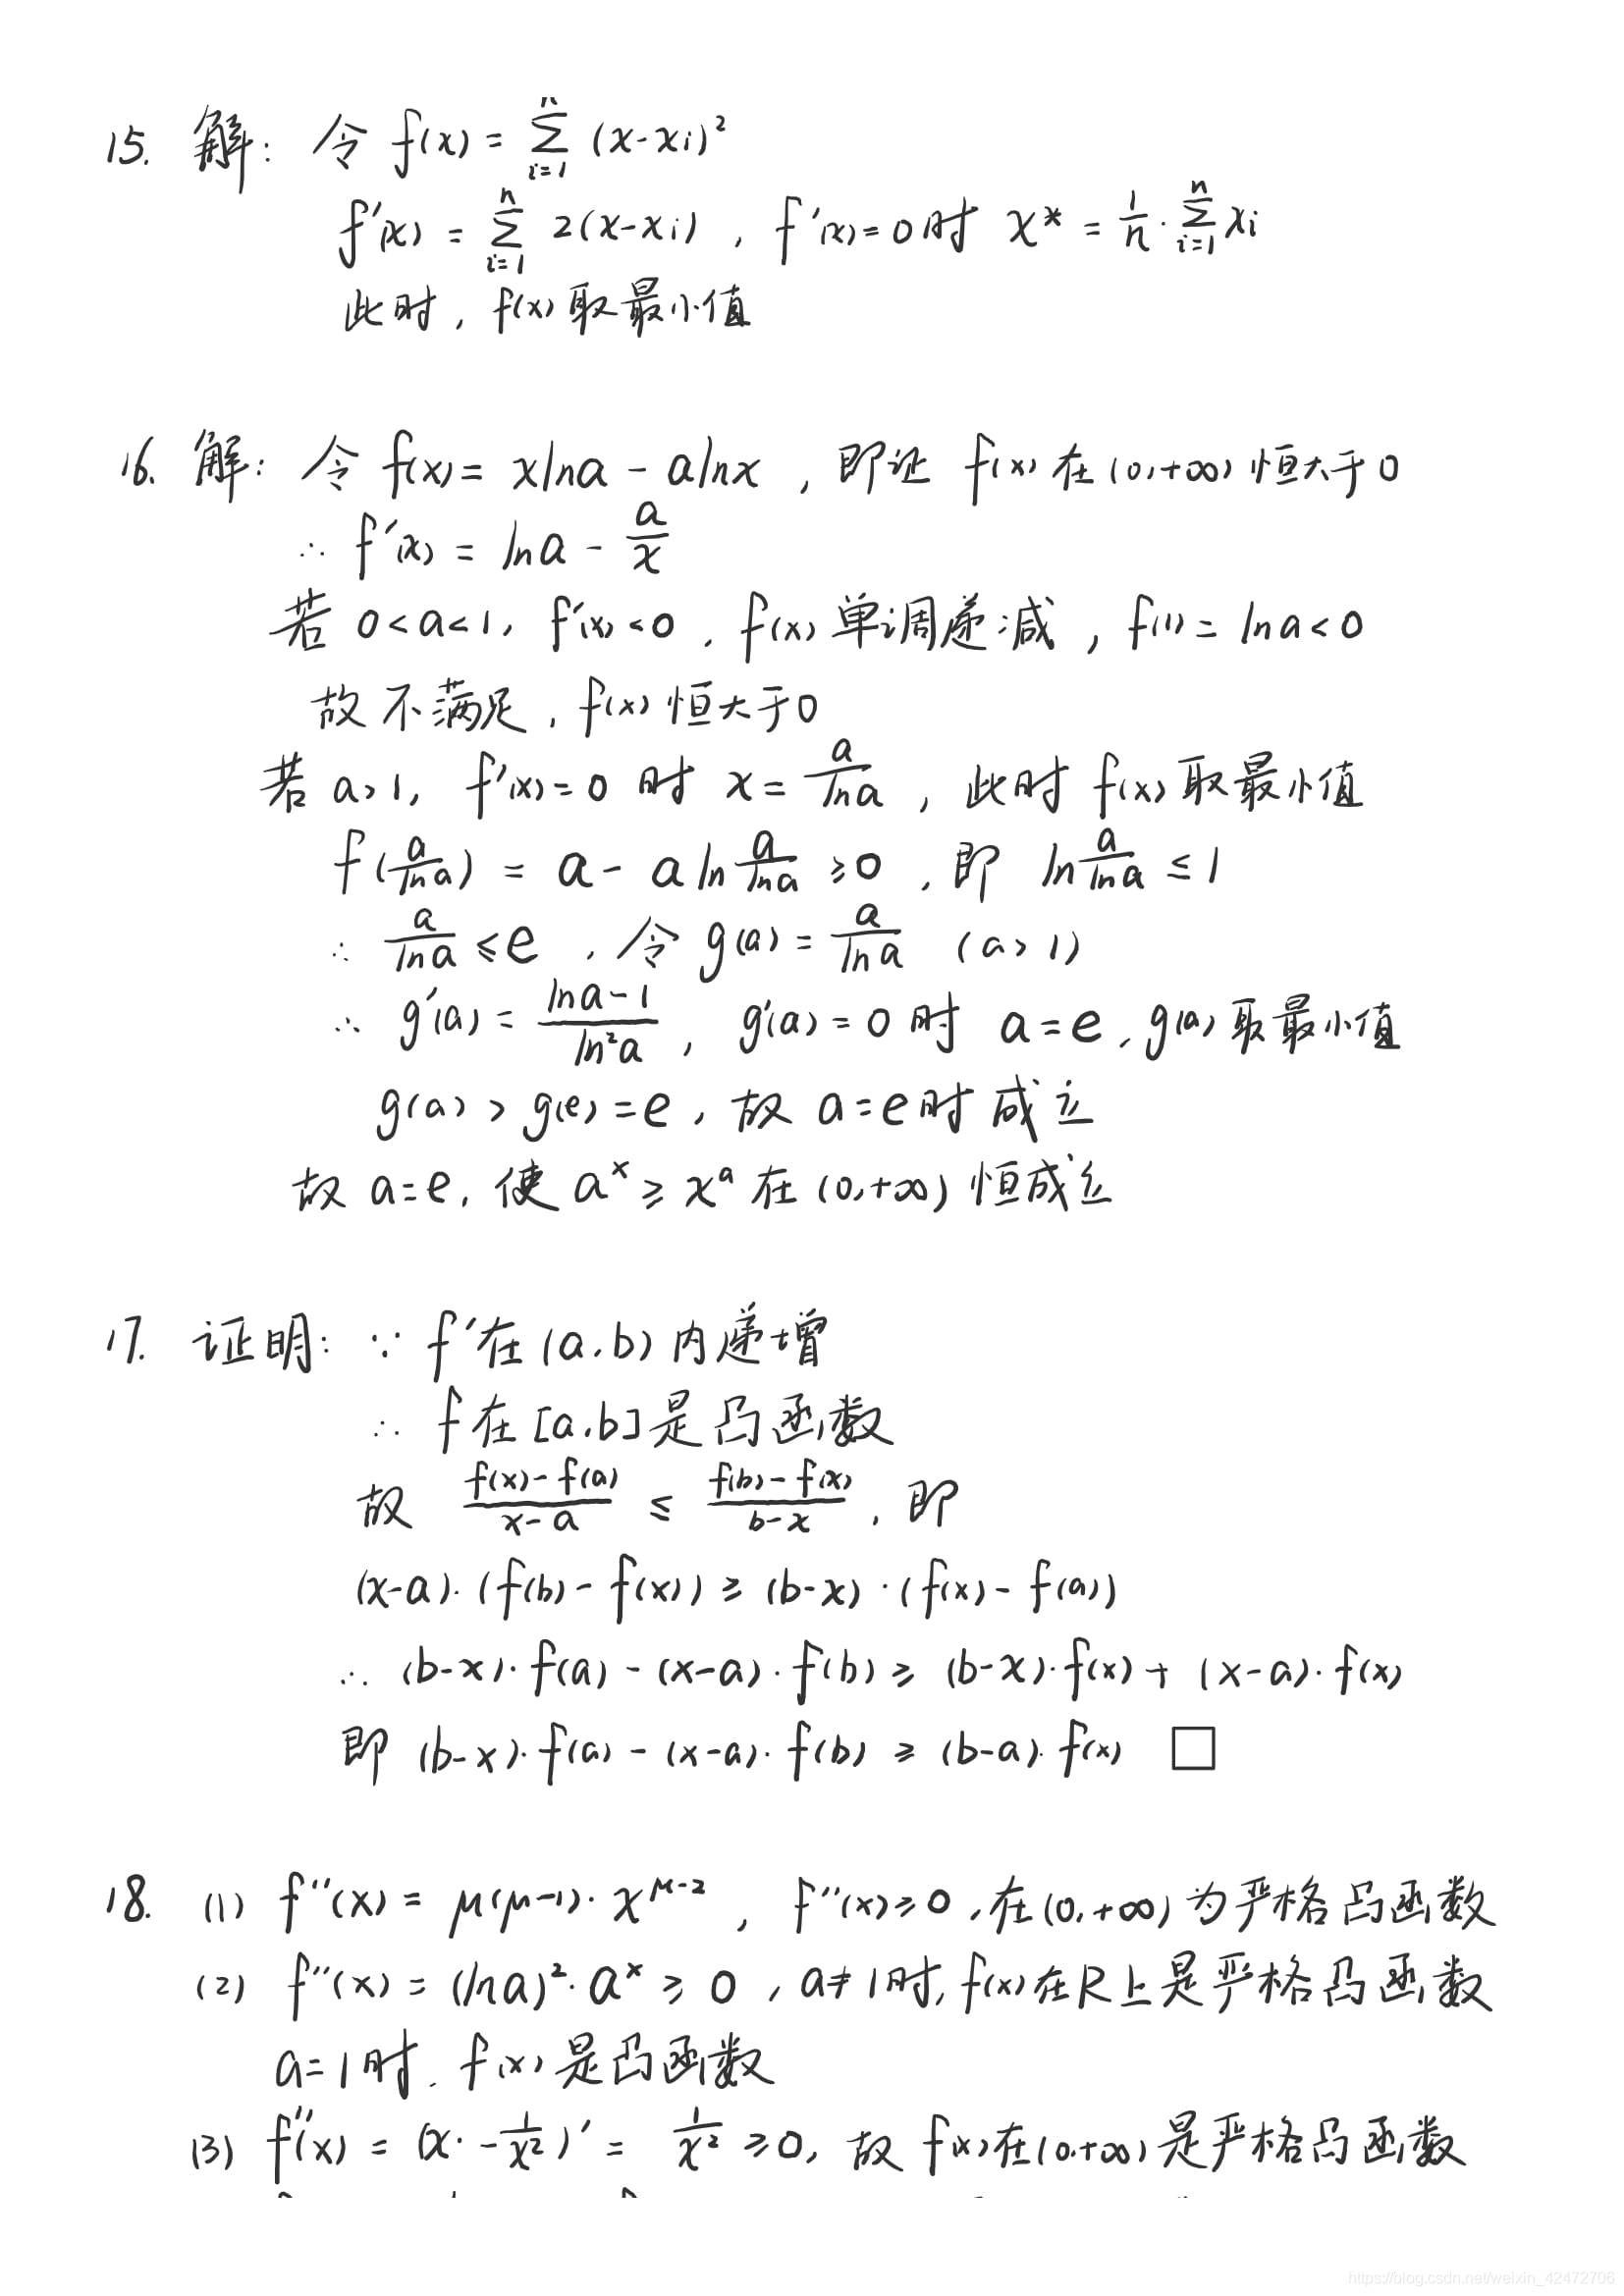 15. 解: 令 f(x) = \sum_{i=1}^{n} (x-x_i)^2
f'(x) = \sum_{i=1}^{n} 2(x-x_i) , f'(x)=0时 x* = \frac{1}{n}·\sum_{i=1}^{n} x_i
此时, f(x)取最小值
16. 解: 令 f(x) = xlna - alnx , 即证 f(x) 在(0,+∞)恒大于0
∴ f'(x) = lna - \frac{a}{x}
若 0<a<1, f'(x)<0 , f(x)单调递减 , f(1) = lna<0
故不满足, f(x)恒大于0
若 a>1, f'(x)=0 时 x = \frac{a}{lna} , 此时 f(x)取最小值
f(\frac{a}{lna}) = a - a ln\frac{a}{lna} ≥0 , 即 ln\frac{a}{lna} ≤ 1
∴ \frac{a}{lna} ≤ e , 令 g(a) = \frac{a}{lna} (a>1)
∴ g'(a) = \frac{lna-1}{ln^2a} , g'(a)=0时 a=e, g(a)取最小值
g(a) > g(e) = e , 故 a=e时 成立
故 a=e, 使 a^x ≥ x^a 在(0,+∞)恒成立
17. 证明: ∵ f'在(a,b)内递增
∴ f在[a,b]是凸函数
故 \frac{f(x)-f(a)}{x-a} ≤ \frac{f(b)-f(x)}{b-x} , 即
(x-a)·(f(b)-f(x)) ≥ (b-x)·(f(x)-f(a))
∴ (b-x)·f(a) - (x-a)·f(b) ≥ (b-x)·f(x) + (x-a)·f(x)
即 (b-x)·f(a) - (x-a)·f(b) ≥ (b-a)·f(x) □
18. (1) f''(x) = μ(μ-1)·x^{μ-2} , f''(x)≥0 ,在(0,+∞)为严格凸函数
(2) f''(x) = (lna)^2·a^x ≥ 0 , a≠1时, f(x)在R上是严格凸函数
a=1时, f(x)是凸函数
(3) f''(x) = (x·-\frac{1}{x^2})' = \frac{1}{x^2} ≥0, 故 f(x)在(0,+∞)是严格凸函数
https://blog.csdn.net/weixin_42472706